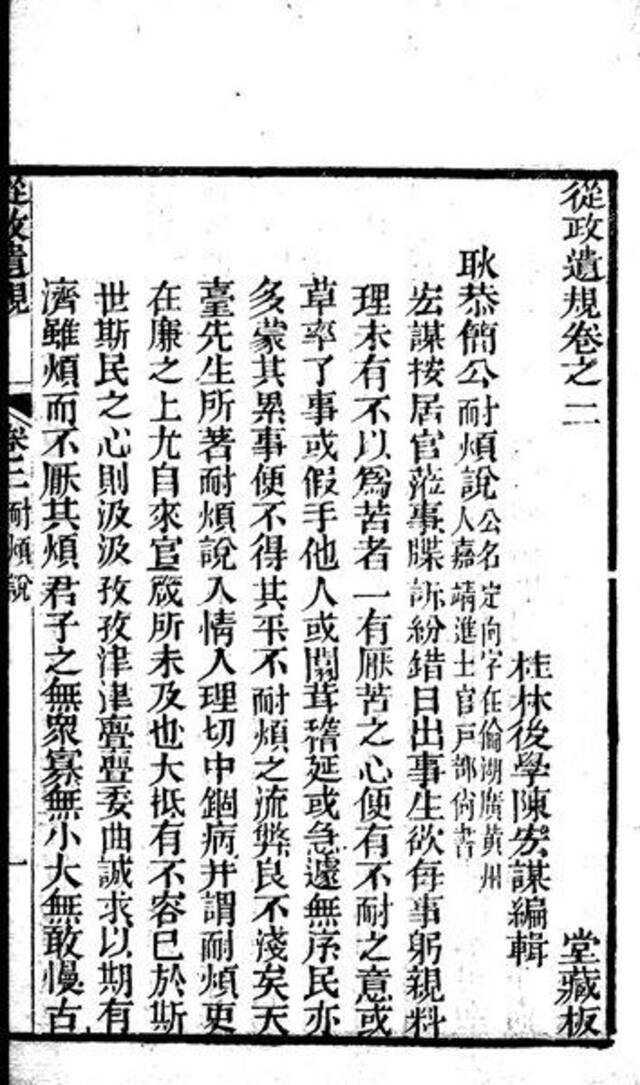 從政遺規卷之二 堂藏板
桂林後學陳宏謀編輯
耿恭簡公耐煩說公名定向字在倫湖廣黃州人嘉靖進士官戸部尙書
宏謀按居官蒞事牒訴紛錯日出事生欲每事躬親料
理未有不以爲苦者一有厭苦之心便有不耐之意或
草率了事或假手他人或闒茸稽延或急遽無序民亦
多蒙其累事便不得其平不耐煩之流弊良不淺矣天
臺先生所著耐煩說入情入理切中錮病幷謂耐煩更
在廉之上尤自來官箴所未及也大抵有不容已於斯
世斯民之心則汲汲孜孜津津亹亹委曲誠求以期有
濟雖煩而不厭其煩君子之無衆寡無小大無敢慢古
從政遺規 卷二耐煩說 一